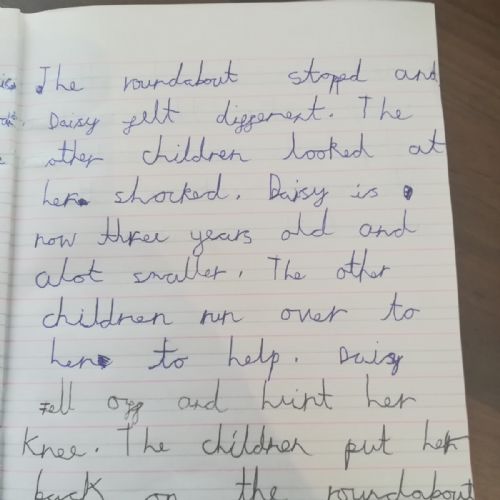 The roundabout stopped and
Daisy felt different. The
other children looked at
her shocked. Daisy is
now three years old and
alot smaller. The other
children run over to
her to help. Daisy
Fell off and hurt her
Knee. The children put her
back on the roundabout